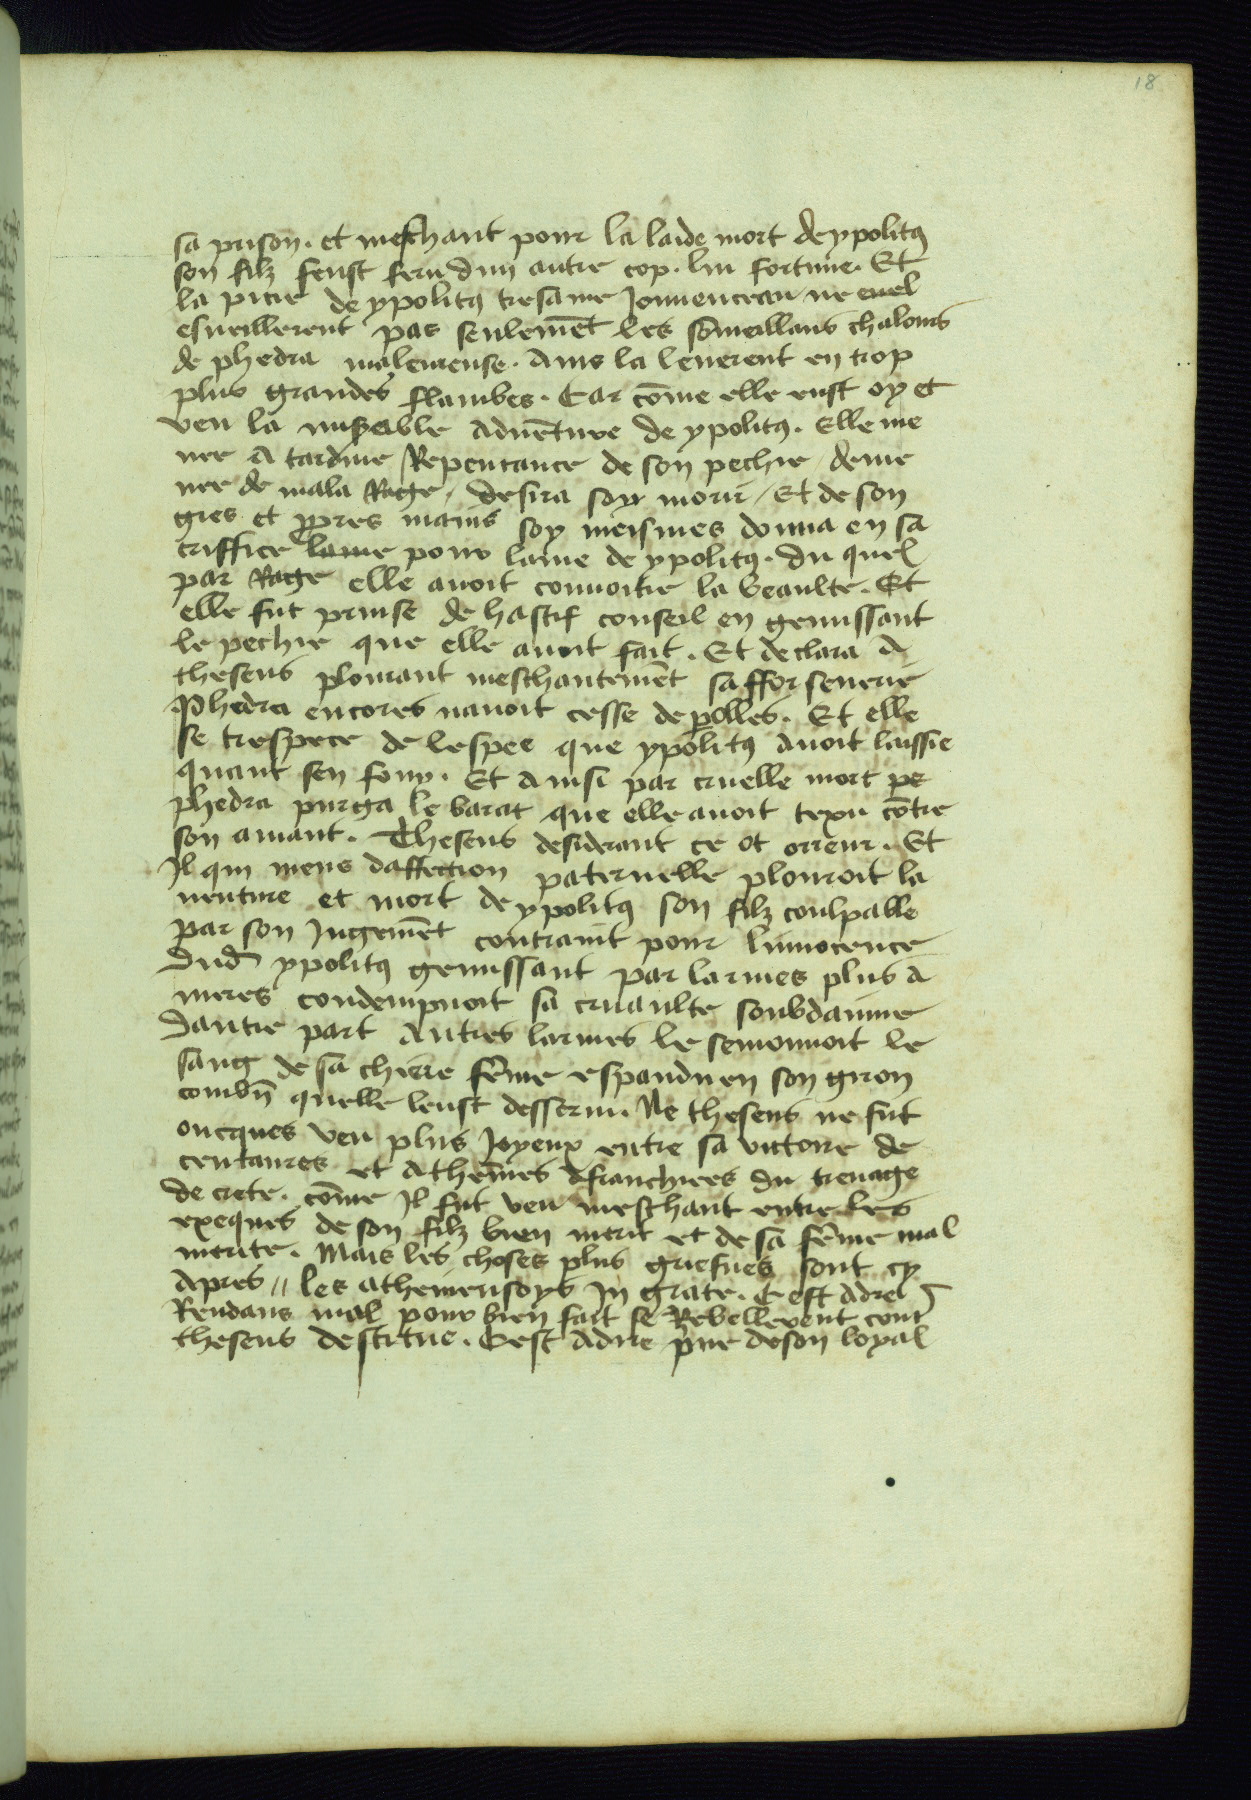 18
sa prison. et meschant pour la laide mort de ypolitus
son filz feust feru dun autre cop. lui fortune. Et
la pitie de ypolitus tresame Jouuenceau ne
esueillerent pas seulemēt les sōmeillans chalours
de phedra maleureuse. Ains la leuerent en trop
plus grandes flambes. Car cōme elle eust oy et
veu la miserable aduēture de ypolitus. Elle me
nee A tardiue Repentance de son pechie / deme
nee de mala Rage, desira soy morir / Et de son
gres et ppres mains soy meismes donna en sa
criffice lame pour lame de ypolitus. du quel
par Rage elle auoit conuoitie la beaulte. Et
elle fut prinse de hastif conseil en gemissant
le pechie que elle auoit fait. Et declara A
theseus plourant meschantemēt sa fforsenerie
Phedra encores nauoit cesse de polles. Et elle
se trespece de lespee que ypolitus Auoit laissie
quant sen fouy. Et Ainsi par cruelle mort pe
phedra purga le barat que elle auoit texu cōtre
son amant. Theseus desiderant ce ot orreur. Et
Il qui meus daffection paternelle plouroit la
uenture et mort de ypolitus son filz coulpable
par son Jugemēt contraint pour linnocence
dud ypolitus gemissant par larmes plus A
meres condempnoit sa cruaulte soubdainne
dautre part Autres larmes le semonnoit le
sang de sa chiere fēme espandu en son giron
combn̄ quelle leust desserui. Ne theseus ne fut
oncques veu plus Joyeux entre sa victoire de
centaures et Athenes Afranchies du treuage
de crete. cōme Il fut veu meschant entre les
exeques de son filz bien merit et de sa fēme mal
merite. Mais les choses plus griefues sont cy
Apres // les atheniensoys In grate. Cest Adire
Rendans mal pour bien fait se Rebellerent cont
theseus destitue. Cest Adire pue deson loyal